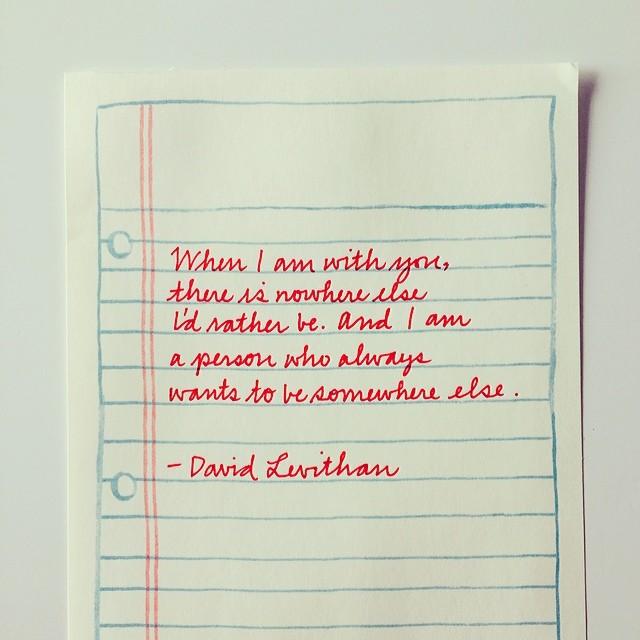 When I am with you,
there is nowhere else
I'd rather be. And I am
a person who always
wants to be somewhere else.
- David Levithan